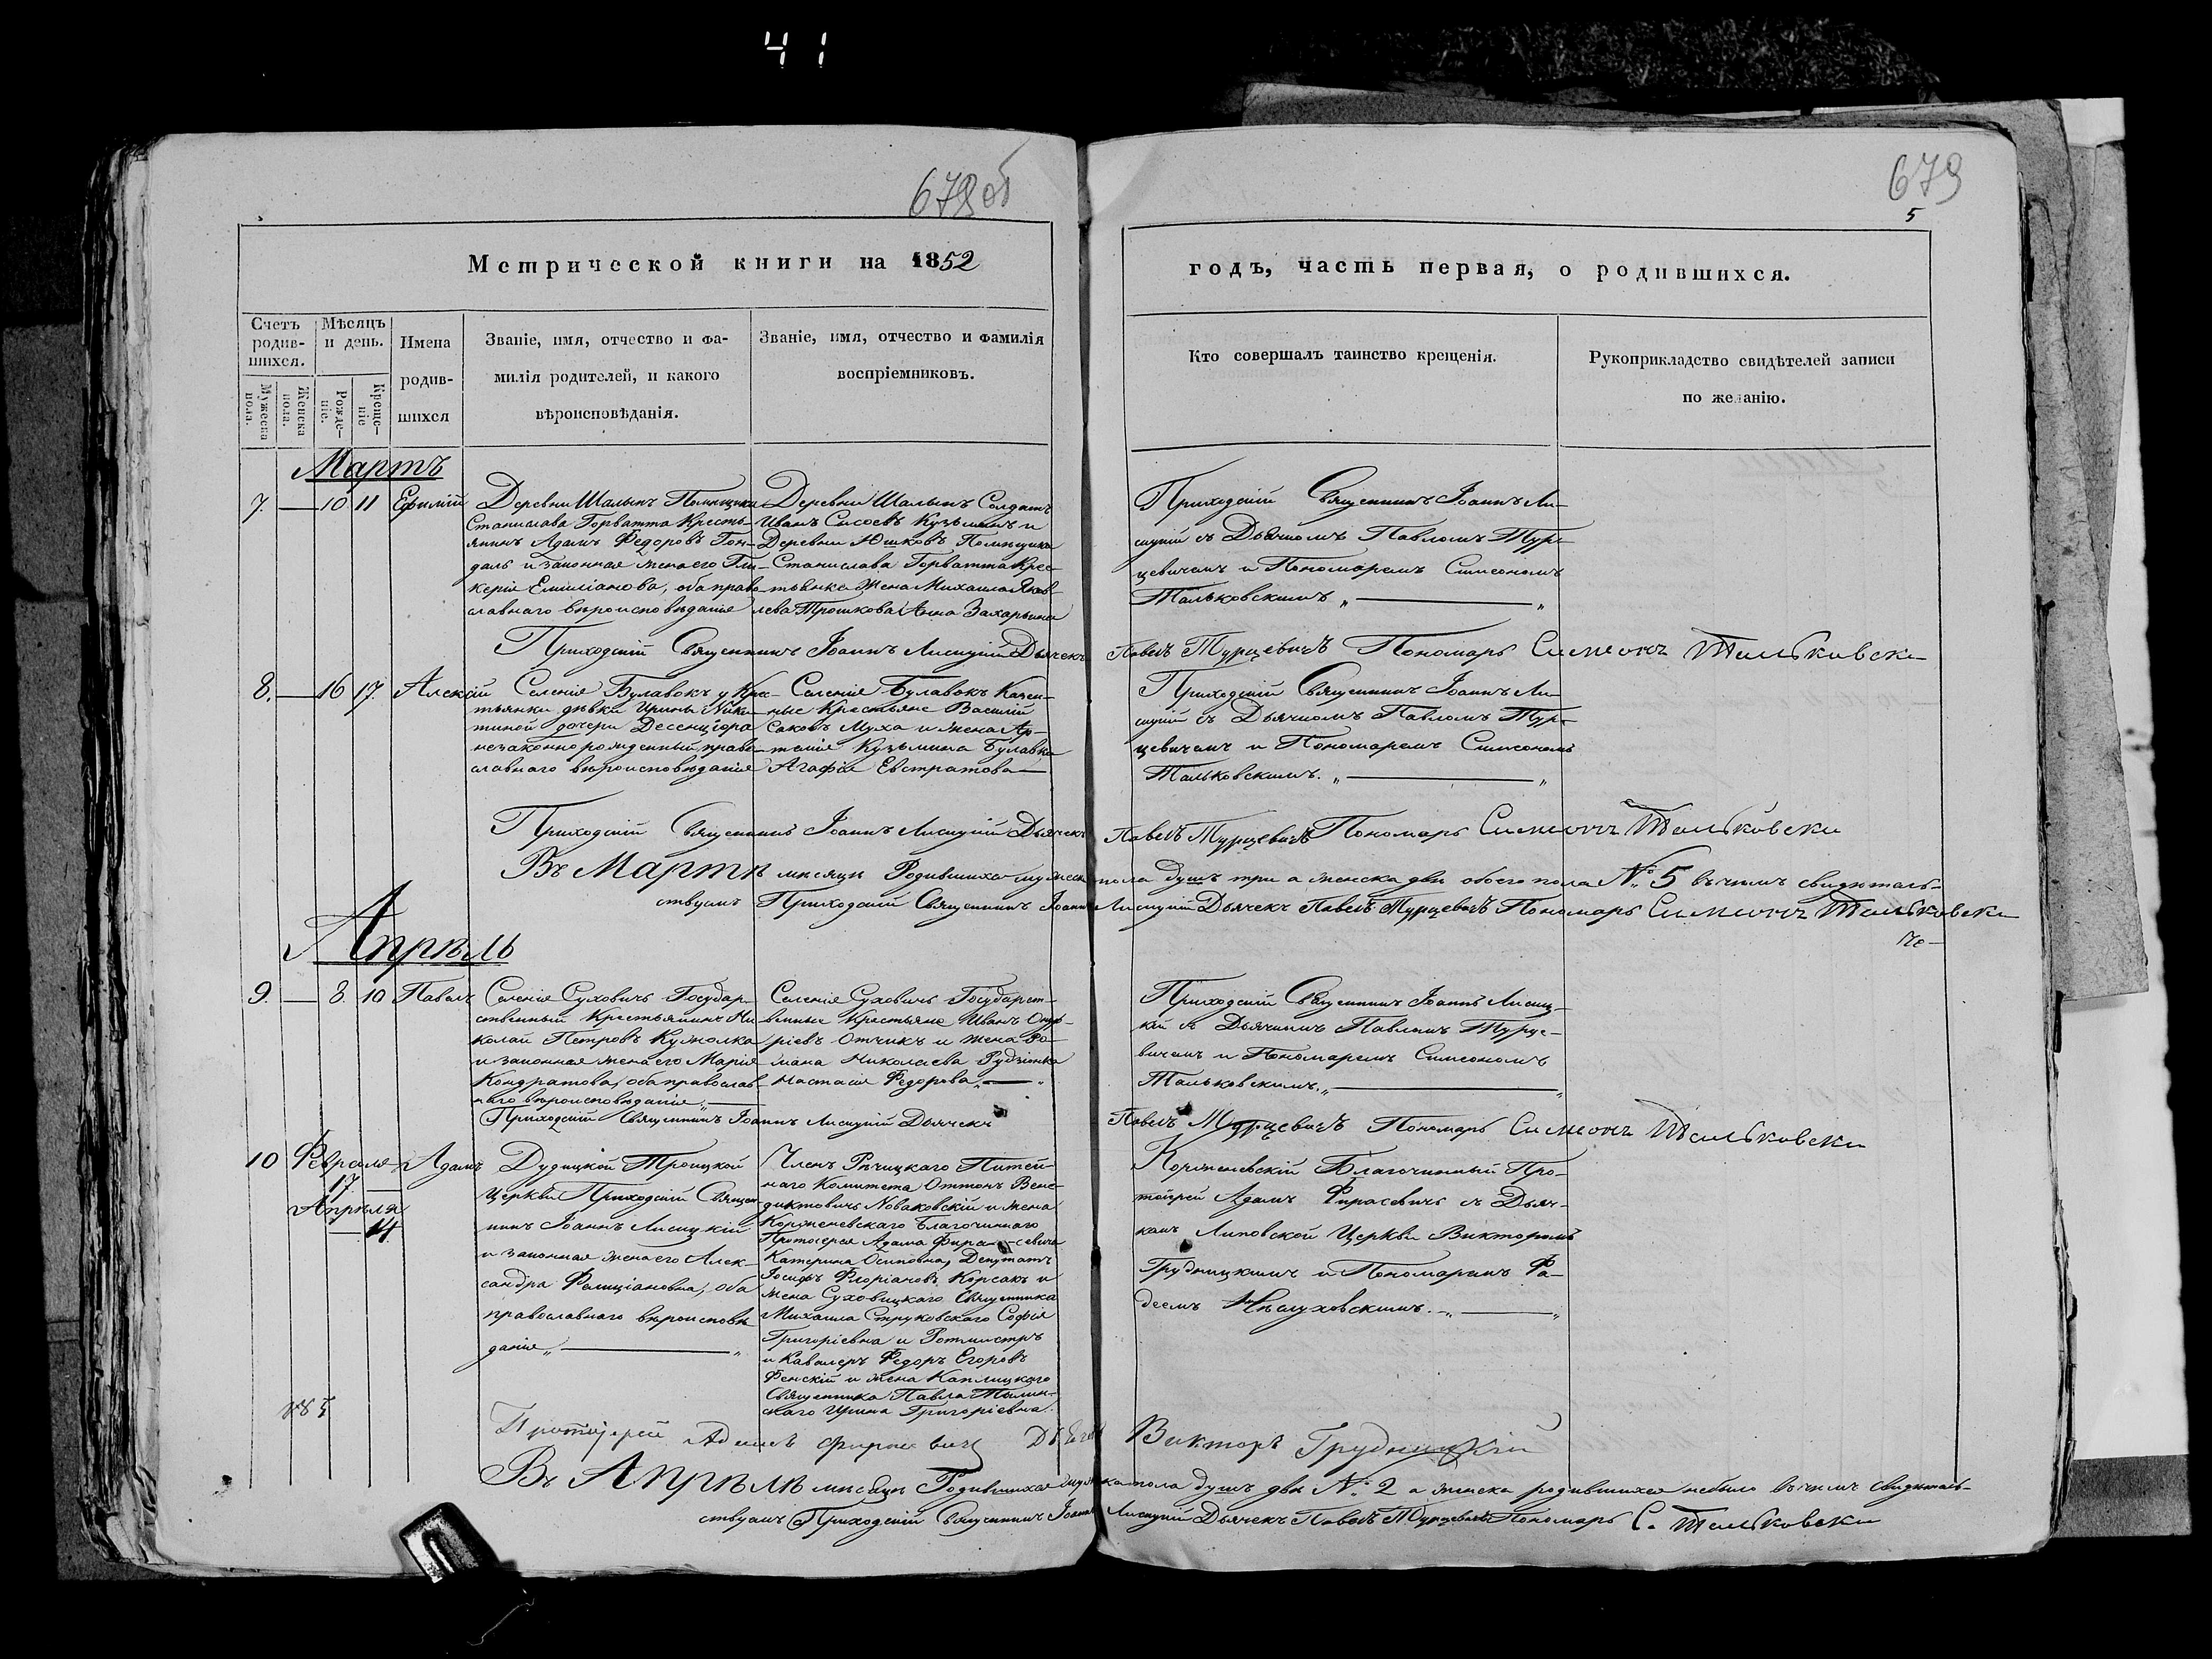 41
678об
679
5
Метрической книги на 1852
годъ, часть первая, о родившихся.
Счетъ родив-шихся.
Мѣсяцъ и день.
Мужеска пола.
Женска пола.
Рожде-ніе.
Креще-ніе
Имена родив-шихся
Званіе, имя, отчество и фа-
милія родителей, и какого
вѣроисповѣданія.
Званіе, имя, отчество и фамилія
воспріемниковъ.
Кто совершалъ таинство крещенія.
Рукоприкладство свидѣтелей записи
по желанію.
Мартъ
7. — 10 11 Ефимій
Деревни Шалыпъ Помѣщика
Станислава Горватта Кресть-
янинъ Адамъ Федоровъ Гон-
даль и законная жена его Гли-
керія Емиліанова, оба право-
славнаго вѣроисповѣданія
Деревни Шалыпъ Солдатъ
Иванъ Сисоевъ Кузьминъ и
Деревни Юшковъ Помѣщика
Станислава Горватта Крес-
тьянка Жена Михаила Яков-
лева Трошкова Анна Захарьина
Приходскій Священникъ Іоаннъ Ли-
сицкій съ Дьячкомъ Павломъ Тур-
цевичемъ и Пономаремъ Симеономъ
Тальковскимъ „ — „
Приходскій Священникъ Іоаннъ Лисицкій Дьячекъ Павелъ Турцевичъ Пономарь Симеонъ Тальковски
8. — 16 17. Алексій
Селенія Булавокъ у Крес-
тьянки дѣвки Ирины Ники-
тиной дочери Десенцгора
незаконнорожденный, право-
славнаго вѣроисповѣданія
Селенія Булавокъ Казен-
ные Крестьяне Василій
Саковъ Муха и жена Ар-
темія Кузьмина Булавка
Агафія Евстратова —
Приходскій Священникъ Іоаннъ Ли-
сицкій съ Дьячкомъ Павломъ Тур-
цевичемъ и Пономаремъ Симеономъ
Тальковскимъ. „ — „
Приходскій Священникъ Іоаннъ Лисицкій Дьячекъ Павелъ Турцевичъ Пономарь Симеонъ Тальковски
Въ Мартѣ мѣсяцѣ Родившихся мужеска пола душъ три а женска двѣ обоего пола № 5 въ чемъ свидѣтель-
ствуемъ Приходскій Священникъ Іоаннъ Лисицкій Дьячекъ Павелъ Турцевичъ Пономарь Симеонъ Тальковски
Апрѣль
9. — 8. 10 Павелъ
Селенія Суховичъ Государ-
ственный Крестьянинъ Ни-
колай Петровъ Кужолка
и законная жена его Марія
Кондратова, оба православ-
наго вѣроисповѣданія. —
Селенія Суховичъ Государст-
венные Крестьяне Иванъ Онуф-
ріевъ Отчикъ и жена Ро-
мана Николаева Рудзіонка
Настасія Федорова „ — „
Приходскій Священникъ Іоаннъ Лисиц-
кій съ Дьячкомъ Павломъ Турце-
вичемъ и Пономаремъ Симеономъ
Тальковскимъ. „ — „
Приходскій Священникъ Іоаннъ Лисицкій Дьячекъ Павелъ Турцевичъ Пономарь Симеонъ Тальковски
10 Февраля 17. Апрѣля — 14. Адамъ
Дудицкой Троицкой
Церкви Приходскій Священ-
никъ Іоаннъ Лисицкій
и законная жена его Алек-
сандра Фелиціановна, оба
православнаго вѣроисповѣ-
данія „ — „
Членъ Рѣчицкаго Питей-
наго Комитета Оттонъ Вене-
диктовичъ Новаковскій и жена
Корженевскаго Благочиннаго
Протоіерея Адама Фира — севича
Катерина Осиповна, Депутатъ
Іосифъ Флоріановъ Корсакъ и
жена Суховицкаго Священника
Михаила Струковскаго Софія
Григоріевна и Ротмистръ
и Кавалеръ Федоръ Егоровъ
Фенскій и жена Каплицкаго
Священника Павла
Ирина Григоріевна.
Корженевскій Благочинный Про-
тоіерей Адамъ Фирасевичъ съ Дьяч-
комъ Липовской Церкви Викторомъ
Грудницкимъ и Пономаремъ Фа-
деемъ Нѣслуховскимъ. „ — „
Протоіерей Адамъ Фирасевичъ Дьячекъ Викторъ Грудницкій
Въ Апрѣлѣ мѣсяцѣ Родившихся мужеска пола душъ двѣ № 2 а женска родившихся небыло въ чемъ свидѣтель-
ствуемъ Приходскій Священникъ Іоаннъ Лисицкій Дьячекъ Павелъ Турцевичъ Пономарь С. Тальковски